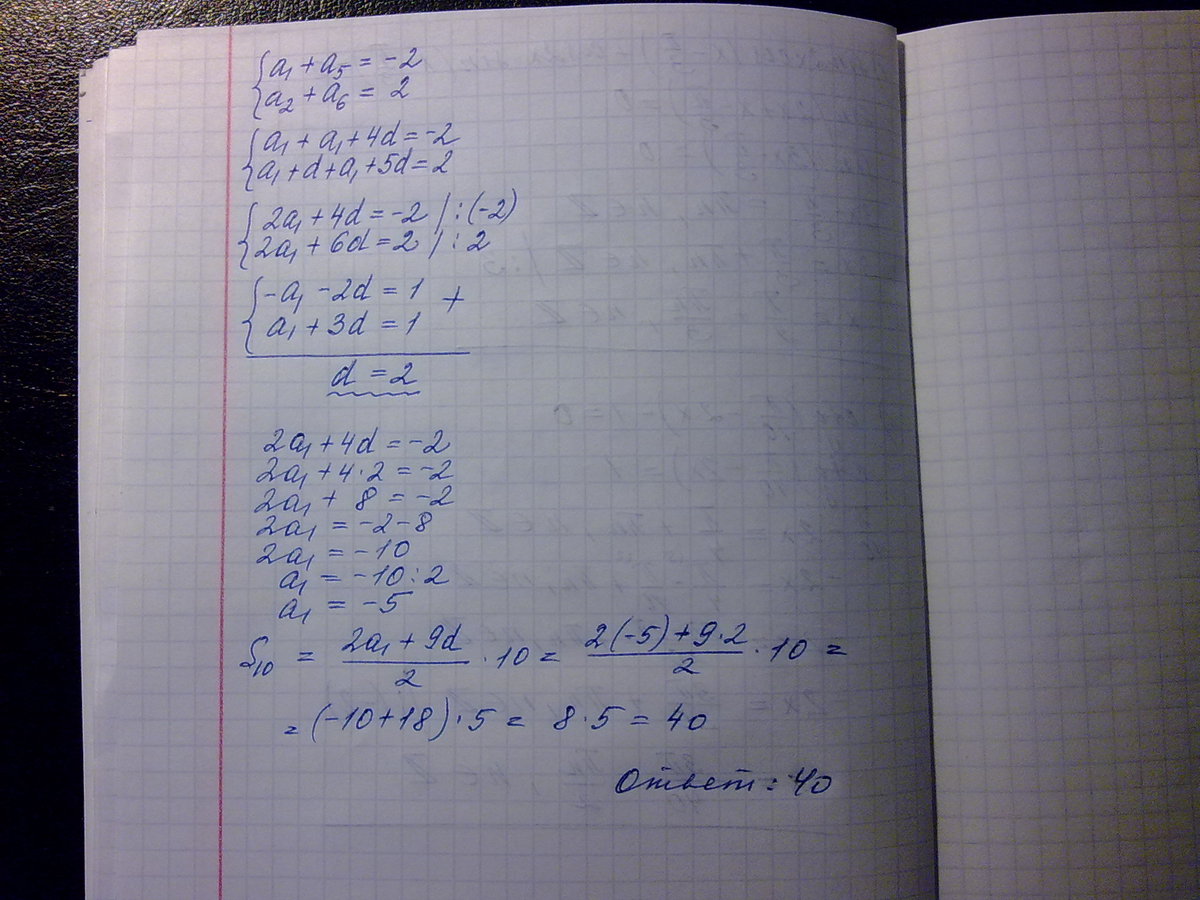 {a₁ + a₅ = -2
{a₂ + a₆ = 2
{a₁ + a₁ + 4d = -2
{a₁ + d + a₁ + 5d = 2
{2a₁ + 4d = -2 | :(-2)
{2a₁ + 6d = 2 | : 2
{-a₁ - 2d = 1 +
{a₁ + 3d = 1
d = 2
2a₁ + 4d = -2
2a₁ + 4·2 = -2
2a₁ + 8 = -2
2a₁ = -2-8
2a₁ = -10
a₁ = -10:2
a₁ = -5
S₁₀ = (2a₁ + 9d)/2 · 10 = (2(-5) + 9·2)/2 · 10 =
= (-10+18)·5 = 8·5 = 40
Ответ: 40